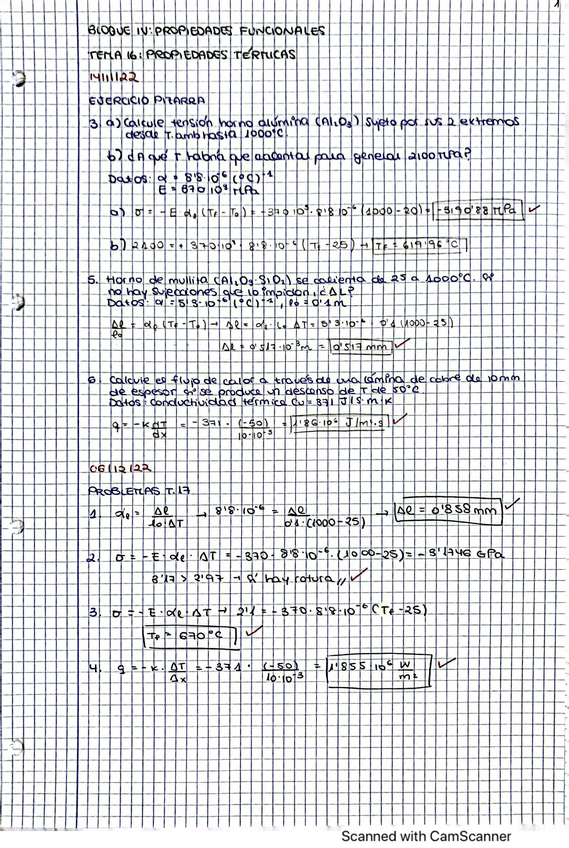 1
BLOQUE IV: PROPIEDADES FUNCIONALES
TEMA 16: PROPIEDADES TÉRMICAS
14/11/22
EJERCICIO PIZARRA
3. a) Calcule tensión horno alúmina (Al2O3) sujeto por sus 2 extremos
desde T. amb hasta 1000°C.
b) ¿A qué T habría que calentar para generar 2100 MPa?
Datos: α = 8'8·10⁻⁶ (°C)⁻¹
E = 370·10³ MPa
a) σ = -E αe (Tf - To) = -370·10³·8'8·10⁻⁶ (1000-20) = -3190'88 MPa ✓
b) 2100 = + 370·10³·8'8·10⁻⁶ (Tf - 25) → Tf = 619'96°C
5. Horno de mullita (Al2O3·SiO2) se calienta de 25 a 1000°C. Si
no hay sujecciones que lo impidan, ¿Δl?
Datos: α = 5'3·10⁻⁶ (°C)⁻¹, lo = 0'1 m
Δl/lo = αe (Tf - To) → Δl = αe·lo ΔT = 5'3·10⁻⁶·0'1 (1000-25)
Δl = 0'517·10⁻³ m = 0'517 mm ✓
6. Calcule el flujo de calor a través de una lámina de cobre de 10 mm
de espesor si se produce un descenso de T de 50°C.
Datos: conductividad térmica Cu = 371 J/s·m·K
q = -K dT/dx = -371 · (-50)/10·10⁻³ = 1'86·10⁶ J/m²·s ✓
06/12/22
PROBLEMAS T.17
1. αe = Δl/lo·ΔT → 8'8·10⁻⁶ = Δl/0'1·(1000-25) → Δl = 0'858 mm ✓
2. σ = -E·αe·ΔT = -370·8'8·10⁻⁶·(1000-25) = -3'1746 GPa
3'17 > 2'97 → sí hay rotura // ✓
3. σ = -E·αe·ΔT → 2'1 = -370·8'8·10⁻⁶ (Tf - 25)
Tf = 670°C ✓
4. q = -K · ΔT/Δx = -371 · (-50)/10·10⁻³ = 1'855·10⁶ W/m² ✓
Scanned with CamScanner